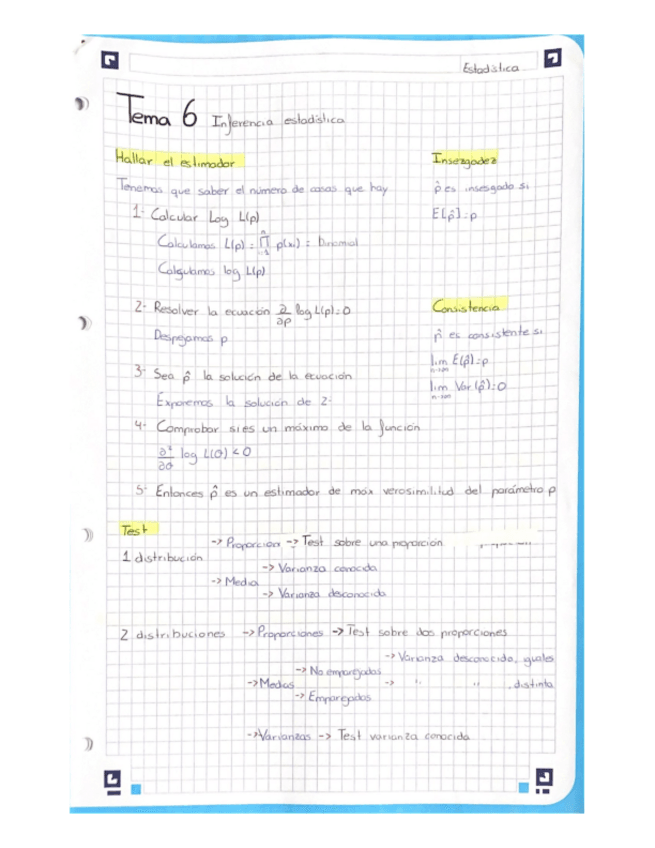 Estadística
Tema 6 Inferencia estadística
Hallar el estimador
Tenemos que saber el número de cosas que hay
1- Calcular Log L(p)
Calculamos L(p) = ∏ p(xᵢ) = binomial
Calculamos log L(p)
2- Resolver la ecuación ∂/∂p log L(p)=0
Despejamos p
3- Sea p̂ la solución de la ecuación
Exponemos la solución de 2-
4- Comprobar si es un máximo de la función
∂²/∂θ log L(θ) < 0
5- Entonces p̂ es un estimador de máx verosimilitud del parámetro p
Insezgadez
p̂ es insesgado si
E[p̂]=p
Consistencia
p̂ es consistente si
lim n→∞ E(p̂)=p
lim n→∞ Var(p̂)=0
Test
1 distribución
-> Proporción -> Test sobre una proporción
-> Media
-> Varianza conocida
-> Varianza desconocida
2 distribuciones -> Proporciones -> Test sobre dos proporciones
-> Medias
-> No emparejadas
-> Varianza desconocida, iguales
-> " " , distinta
-> Emparejados
-> Varianzas -> Test varianza conocida